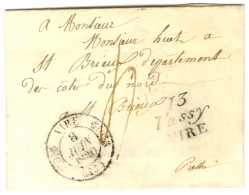 A Monsieur
Monsieur huet a
St Brieux département
des cote du nord
St Brieux
13
Vassy
VIRE
VIRE
8
JUIN
Presse